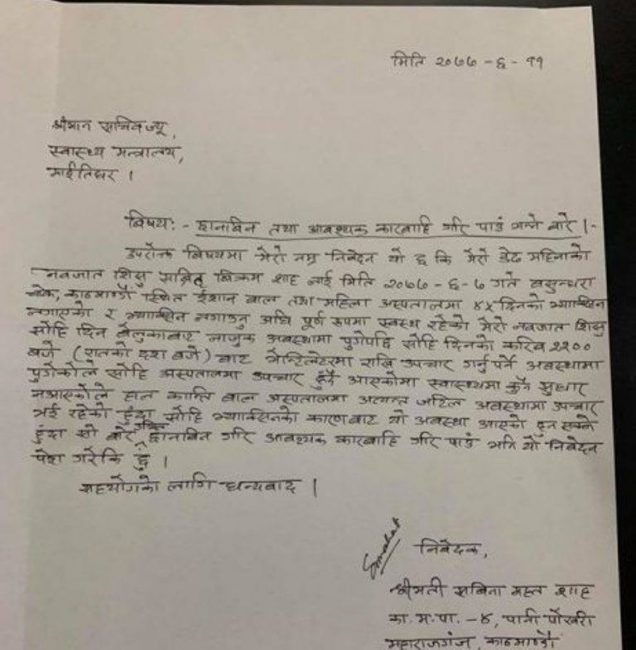 मिति २०७७ - ६ - ११
श्रीमान सचिव ज्यू,
स्वास्थ्य मन्त्रालय,
माईतिघर ।
विषयः- छानाबिन तथा आवश्यक कारबाहि गरि पाउँ भन्ने बारे ।-
उपरोक्त बिषयमा मेरो नम्र निवेदन यो छ कि मेरो डेढ महिनाको
नवजात शिशु बिक्रम शाह लाई मिति २०७७ -६ -७ गते बसुन्धरा
चोक, काठमाण्डौ स्थित ईशान बाल तथा महिला अस्पतालमा ४५ दिनको भ्याक्सिन
लगाएको र भ्याक्सिन लगाउनु अघि पूर्ण रुपमा स्वस्थ रहेको मेरो नवजात शिशु
सोहि दिन बेलुकाबाट नाजुक अवस्थामा पुगेपछि सोहि दिनको करिब २२००
बजे (रातको दश बजे) बाट भेन्टिलेटरमा राखि उपचार गर्नु पर्ने अवस्थामा
पुगेकोले सोहि अस्पतालमा उपचार हुँदै आएकोमा स्वास्थ्यमा कुनै सुधार
नआएकोले हाल कान्ति बाल अस्पतालमा अत्यन्त जटिल अवस्थामा उपचार
भई रहेको हुँदा सोहि भ्याक्सिनको कारणबाट यो अवस्था आएको हुन सक्ने
हुँदा सो बारे उचित छानाबिन गरि आवश्यक कारबाहि गरि पाउँ भनि यो निवेदन
पेश गरेकि छु ।
सहयोगको लागि धन्यवाद ।
निवेदक,
श्रीमती सबिना मल्ल शाह
का.म.पा. -४, पानी पोखरी
महाराजगंज, काठमाण्डौ